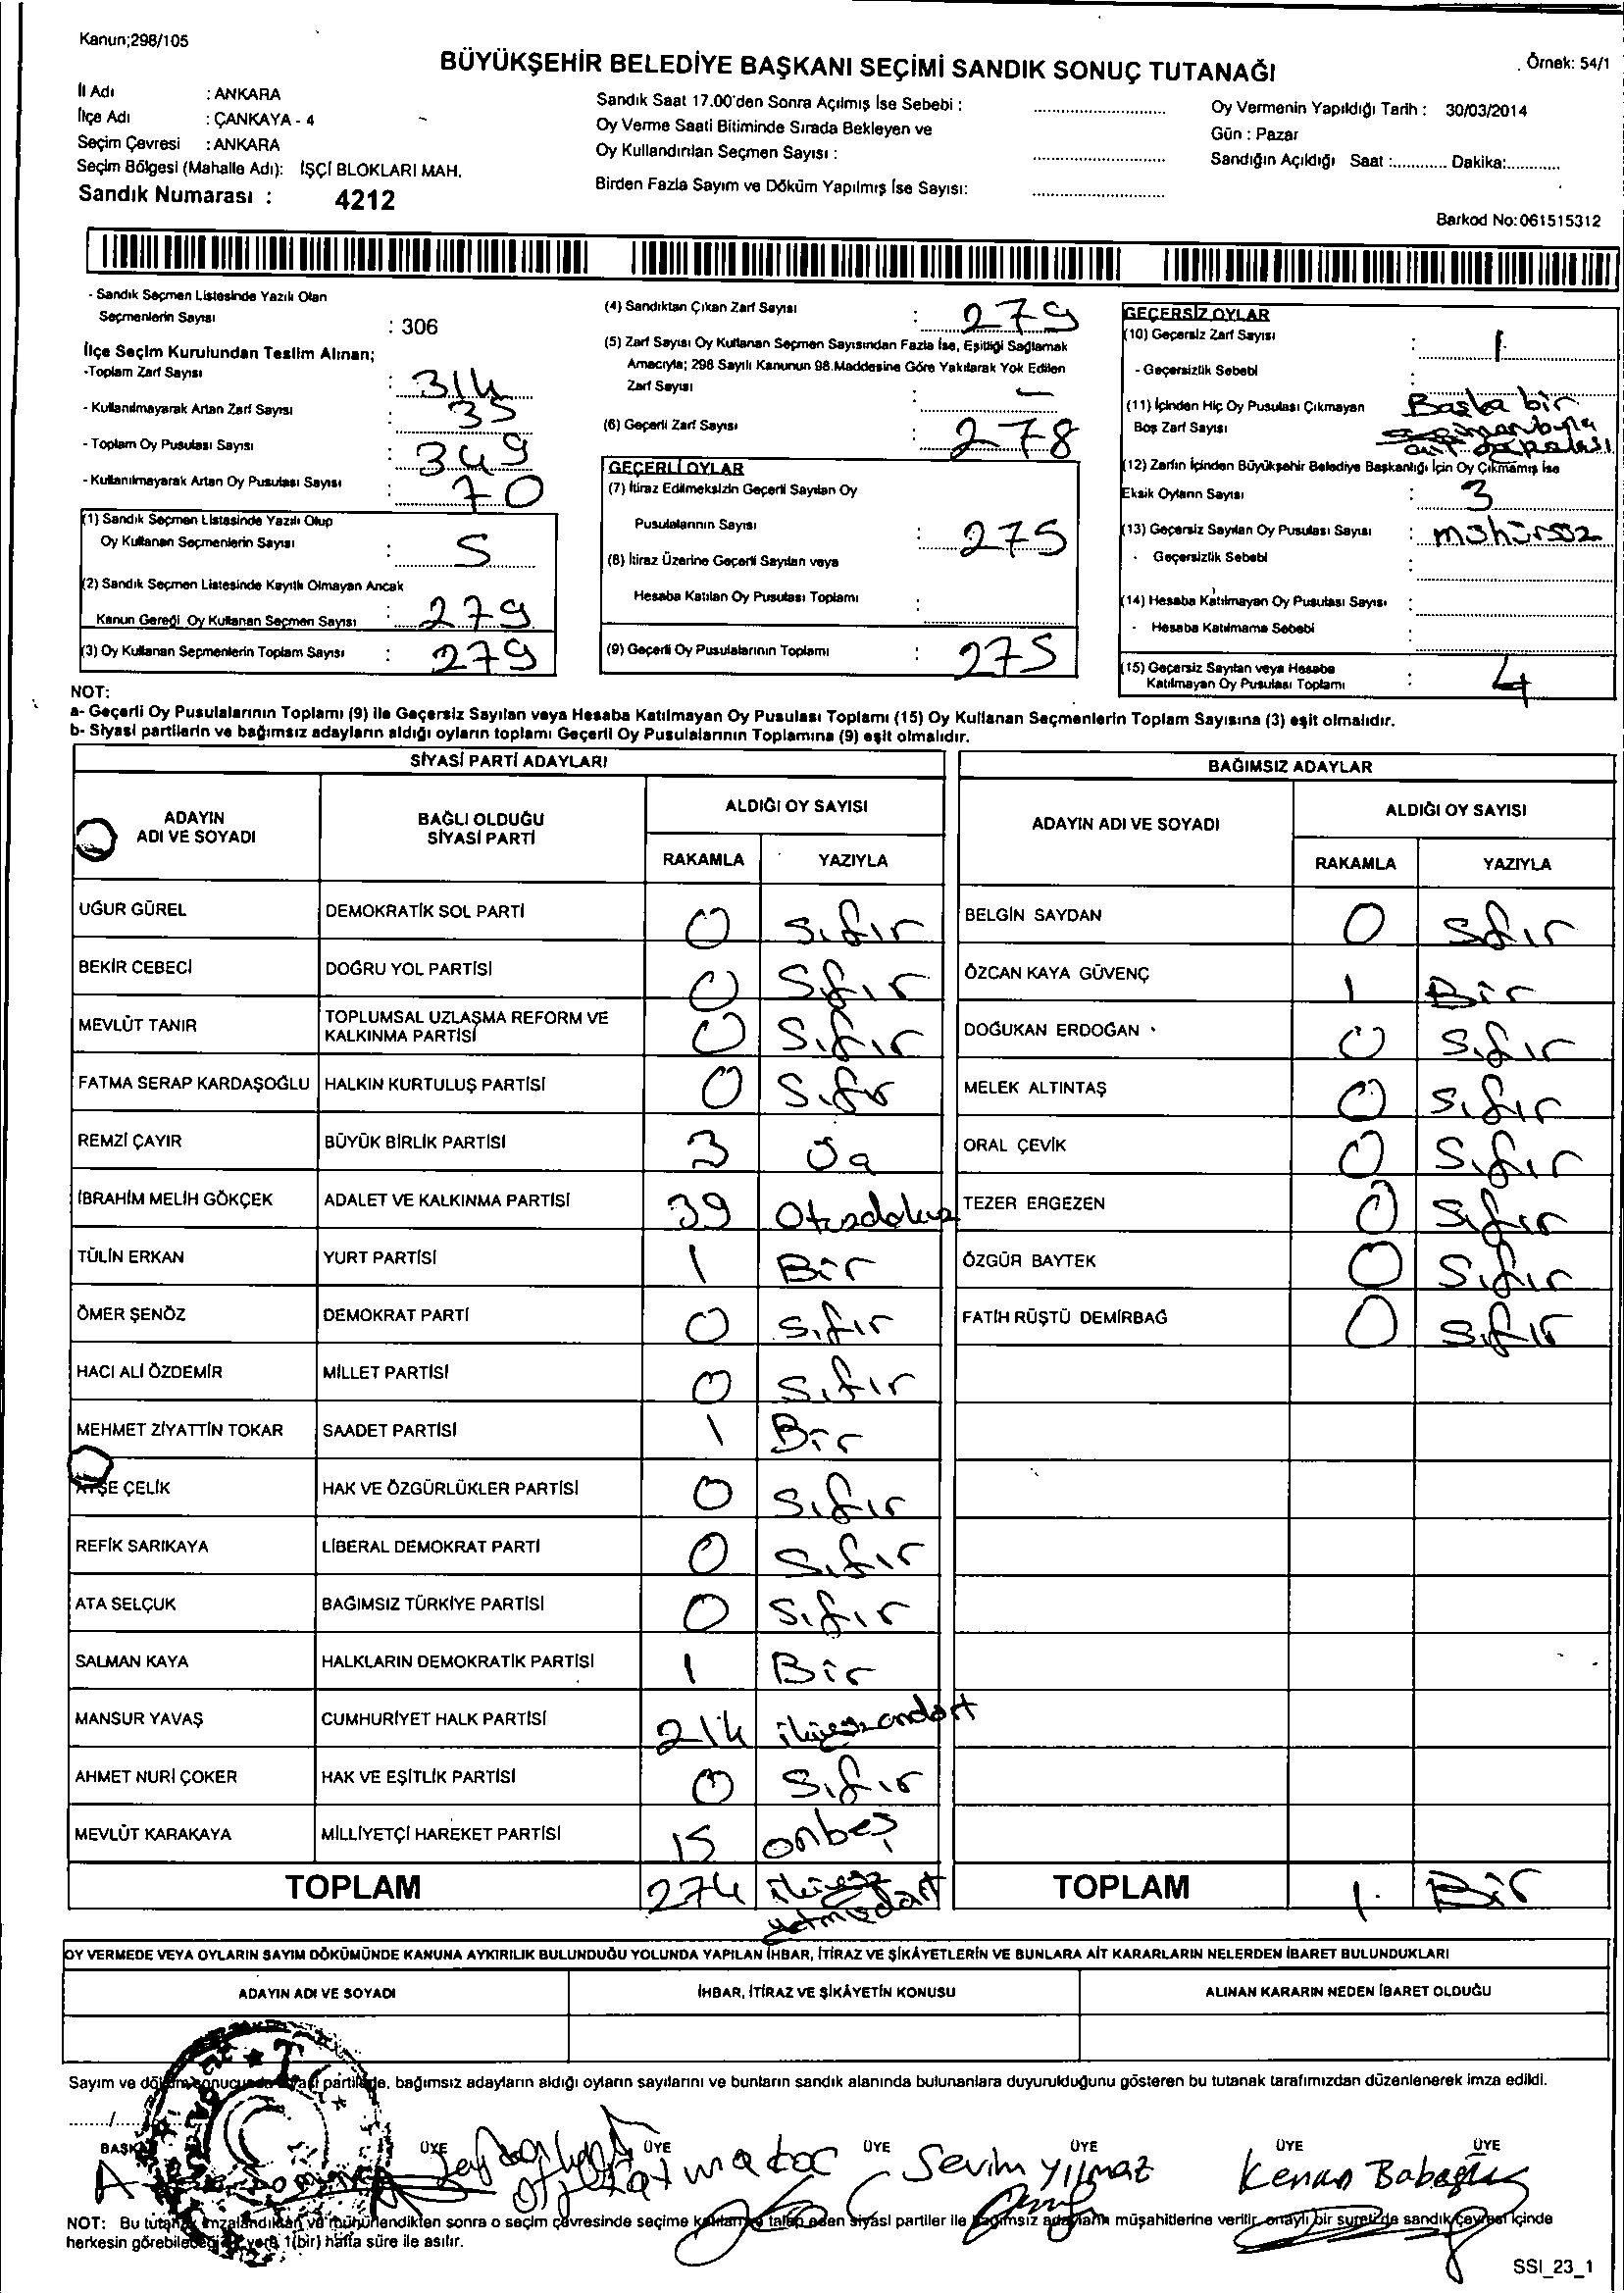 Kanun;298/105
BÜYÜKŞEHİR BELEDİYE BAŞKANI SEÇİMİ SANDIK SONUÇ TUTANAĞI
Örnek: 54/1
İl Adı : ANKARA
İlçe Adı : ÇANKAYA - 4
Seçim Çevresi : ANKARA
Seçim Bölgesi (Mahalle Adı): İŞÇİ BLOKLARI MAH.
Sandık Numarası : 4212
Sandık Saat 17.00'den Sonra Açılmış İse Sebebi :
Oy Verme Saati Bitiminde Sırada Bekleyen ve
Oy Kullandırılan Seçmen Sayısı :
Birden Fazla Sayım ve Döküm Yapılmış İse Sayısı:
Oy Vermenin Yapıldığı Tarih : 30/03/2014
Gün : Pazar
Sandığın Açıldığı Saat :............ Dakika:............
Barkod No:061515312
- Sandık Seçmen Listesinde Yazılı Olan
Seçmenlerin Sayısı : 306
İlçe Seçim Kurulundan Teslim Alınan;
-Toplam Zarf Sayısı : 314
- Kullanılmayarak Artan Zarf Sayısı : 35
- Toplam Oy Pusulası Sayısı : 349
- Kullanılmayarak Artan Oy Pusulası Sayısı : 70
(1) Sandık Seçmen Listesinde Yazılı Olup
Oy Kullanan Seçmenlerin Sayısı : 5
(2) Sandık Seçmen Listesinde Kayıtlı Olmayan Ancak
Kanun Gereği Oy Kullanan Seçmen Sayısı : 279
(3) Oy Kullanan Seçmenlerin Toplam Sayısı : 279
(4) Sandıktan Çıkan Zarf Sayısı : 279
(5) Zarf Sayısı Oy Kullanan Seçmen Sayısından Fazla İse, Eşitliği Sağlamak
Amacıyla; 298 Sayılı Kanunun 98.Maddesine Göre Yakılarak Yok Edilen
Zarf Sayısı : –
(6) Geçerli Zarf Sayısı : 278
GEÇERLİ OYLAR
(7) İtiraz Edilmeksizin Geçerli Sayılan Oy
Pusulalarının Sayısı : 275
(8) İtiraz Üzerine Geçerli Sayılan veya
Hesaba Katılan Oy Pusulası Toplamı :
(9) Geçerli Oy Pusulalarının Toplamı : 275
GEÇERSİZ OYLAR
(10) Geçersiz Zarf Sayısı : 1
- Geçersizlik Sebebi :
(11) İçinden Hiç Oy Pusulası Çıkmayan Başka bir
Boş Zarf Sayısı
(12) Zarfın İçinden Büyükşehir Belediye Başkanlığı İçin Oy Çıkmamış İse
Eksik Oyların Sayısı : 3
(13) Geçersiz Sayılan Oy Pusulası Sayısı : mühürsüz
- Geçersizlik Sebebi :
(14) Hesaba Katılmayan Oy Pusulası Sayısı :
- Hesaba Katılmama Sebebi :
(15) Geçersiz Sayılan veya Hesaba
Katılmayan Oy Pusulası Toplamı : 4
NOT:
a- Geçerli Oy Pusulalarının Toplamı (9) ile Geçersiz Sayılan veya Hesaba Katılmayan Oy Pusulası Toplamı (15) Oy Kullanan Seçmenlerin Toplam Sayısına (3) eşit olmalıdır.
b- Siyasi partilerin ve bağımsız adayların aldığı oyların toplamı Geçerli Oy Pusulalarının Toplamına (9) eşit olmalıdır.
SİYASİ PARTİ ADAYLARI
ADAYIN ADI VE SOYADI
BAĞLI OLDUĞU SİYASİ PARTİ
ALDIĞI OY SAYISI
RAKAMLA YAZIYLA
UĞUR GÜREL DEMOKRATİK SOL PARTİ 0 Sıfır
BEKİR CEBECİ DOĞRU YOL PARTİSİ 0 Sfır
MEVLÜT TANIR TOPLUMSAL UZLAŞMA REFORM VE KALKINMA PARTİSİ 0 Sıfır
FATMA SERAP KARDAŞOĞLU HALKIN KURTULUŞ PARTİSİ 0 Sıfır
REMZİ ÇAYIR BÜYÜK BİRLİK PARTİSİ 3 Üç
İBRAHİM MELİH GÖKÇEK ADALET VE KALKINMA PARTİSİ 39 Otuzdokuz
TÜLİN ERKAN YURT PARTİSİ 1 Bir
ÖMER ŞENÖZ DEMOKRAT PARTİ 0 Sıfır
HACI ALİ ÖZDEMİR MİLLET PARTİSİ 0 Sıfır
MEHMET ZİYATTİN TOKAR SAADET PARTİSİ 1 Bir
AYŞE ÇELİK HAK VE ÖZGÜRLÜKLER PARTİSİ 0 Sıfır
REFİK SARIKAYA LİBERAL DEMOKRAT PARTİ 0 Sıfır
ATA SELÇUK BAĞIMSIZ TÜRKİYE PARTİSİ 0 Sıfır
SALMAN KAYA HALKLARIN DEMOKRATİK PARTİSİ 1 Bir
MANSUR YAVAŞ CUMHURİYET HALK PARTİSİ 214 ikiyüzondört
AHMET NURİ ÇOKER HAK VE EŞİTLİK PARTİSİ 0 Sıfır
MEVLÜT KARAKAYA MİLLİYETÇİ HAREKET PARTİSİ 15 onbeş
TOPLAM 274 ikiyüz yetmişdört
BAĞIMSIZ ADAYLAR
ADAYIN ADI VE SOYADI
ALDIĞI OY SAYISI
RAKAMLA YAZIYLA
BELGİN SAYDAN 0 Sıfır
ÖZCAN KAYA GÜVENÇ 1 Bir
DOĞUKAN ERDOĞAN 0 Sıfır
MELEK ALTINTAŞ 0 Sıfır
ORAL ÇEVİK 0 Sıfır
TEZER ERGEZEN 0 Sıfır
ÖZGÜR BAYTEK 0 Sıfır
FATİH RÜŞTÜ DEMİRBAĞ 0 Sıfır
TOPLAM 1 Bir
OY VERMEDE VEYA OYLARIN SAYIM DÖKÜMÜNDE KANUNA AYKIRILIK BULUNDUĞU YOLUNDA YAPILAN İHBAR, İTİRAZ VE ŞİKÂYETLERİN VE BUNLARA AİT KARARLARIN NELERDEN İBARET BULUNDUKLARI
ADAYIN ADI VE SOYADI İHBAR, İTİRAZ VE ŞİKÂYETİN KONUSU ALINAN KARARIN NEDEN İBARET OLDUĞU
Sayım ve döküm sonucunda siyasi partilerle, bağımsız adayların aldığı oyların sayılarını ve bunların sandık alanında bulunanlara duyurulduğunu gösteren bu tutanak tarafımızdan düzenlenerek imza edildi.
BAŞKAN ÜYE ÜYE ÜYE ÜYE ÜYE ÜYE
Sevim YILMAZ Kenan
NOT: Bu tutanak imzalandıktan ve mühürlendikten sonra o seçim çevresinde seçime katılan ve talep eden siyasi partiler ile bağımsız adayların müşahitlerine verilir, onaylı bir sureti de sandık çevresi içinde
herkesin görebileceği bir yere 1(bir) hafta süre ile asılır.
SSI_23_1